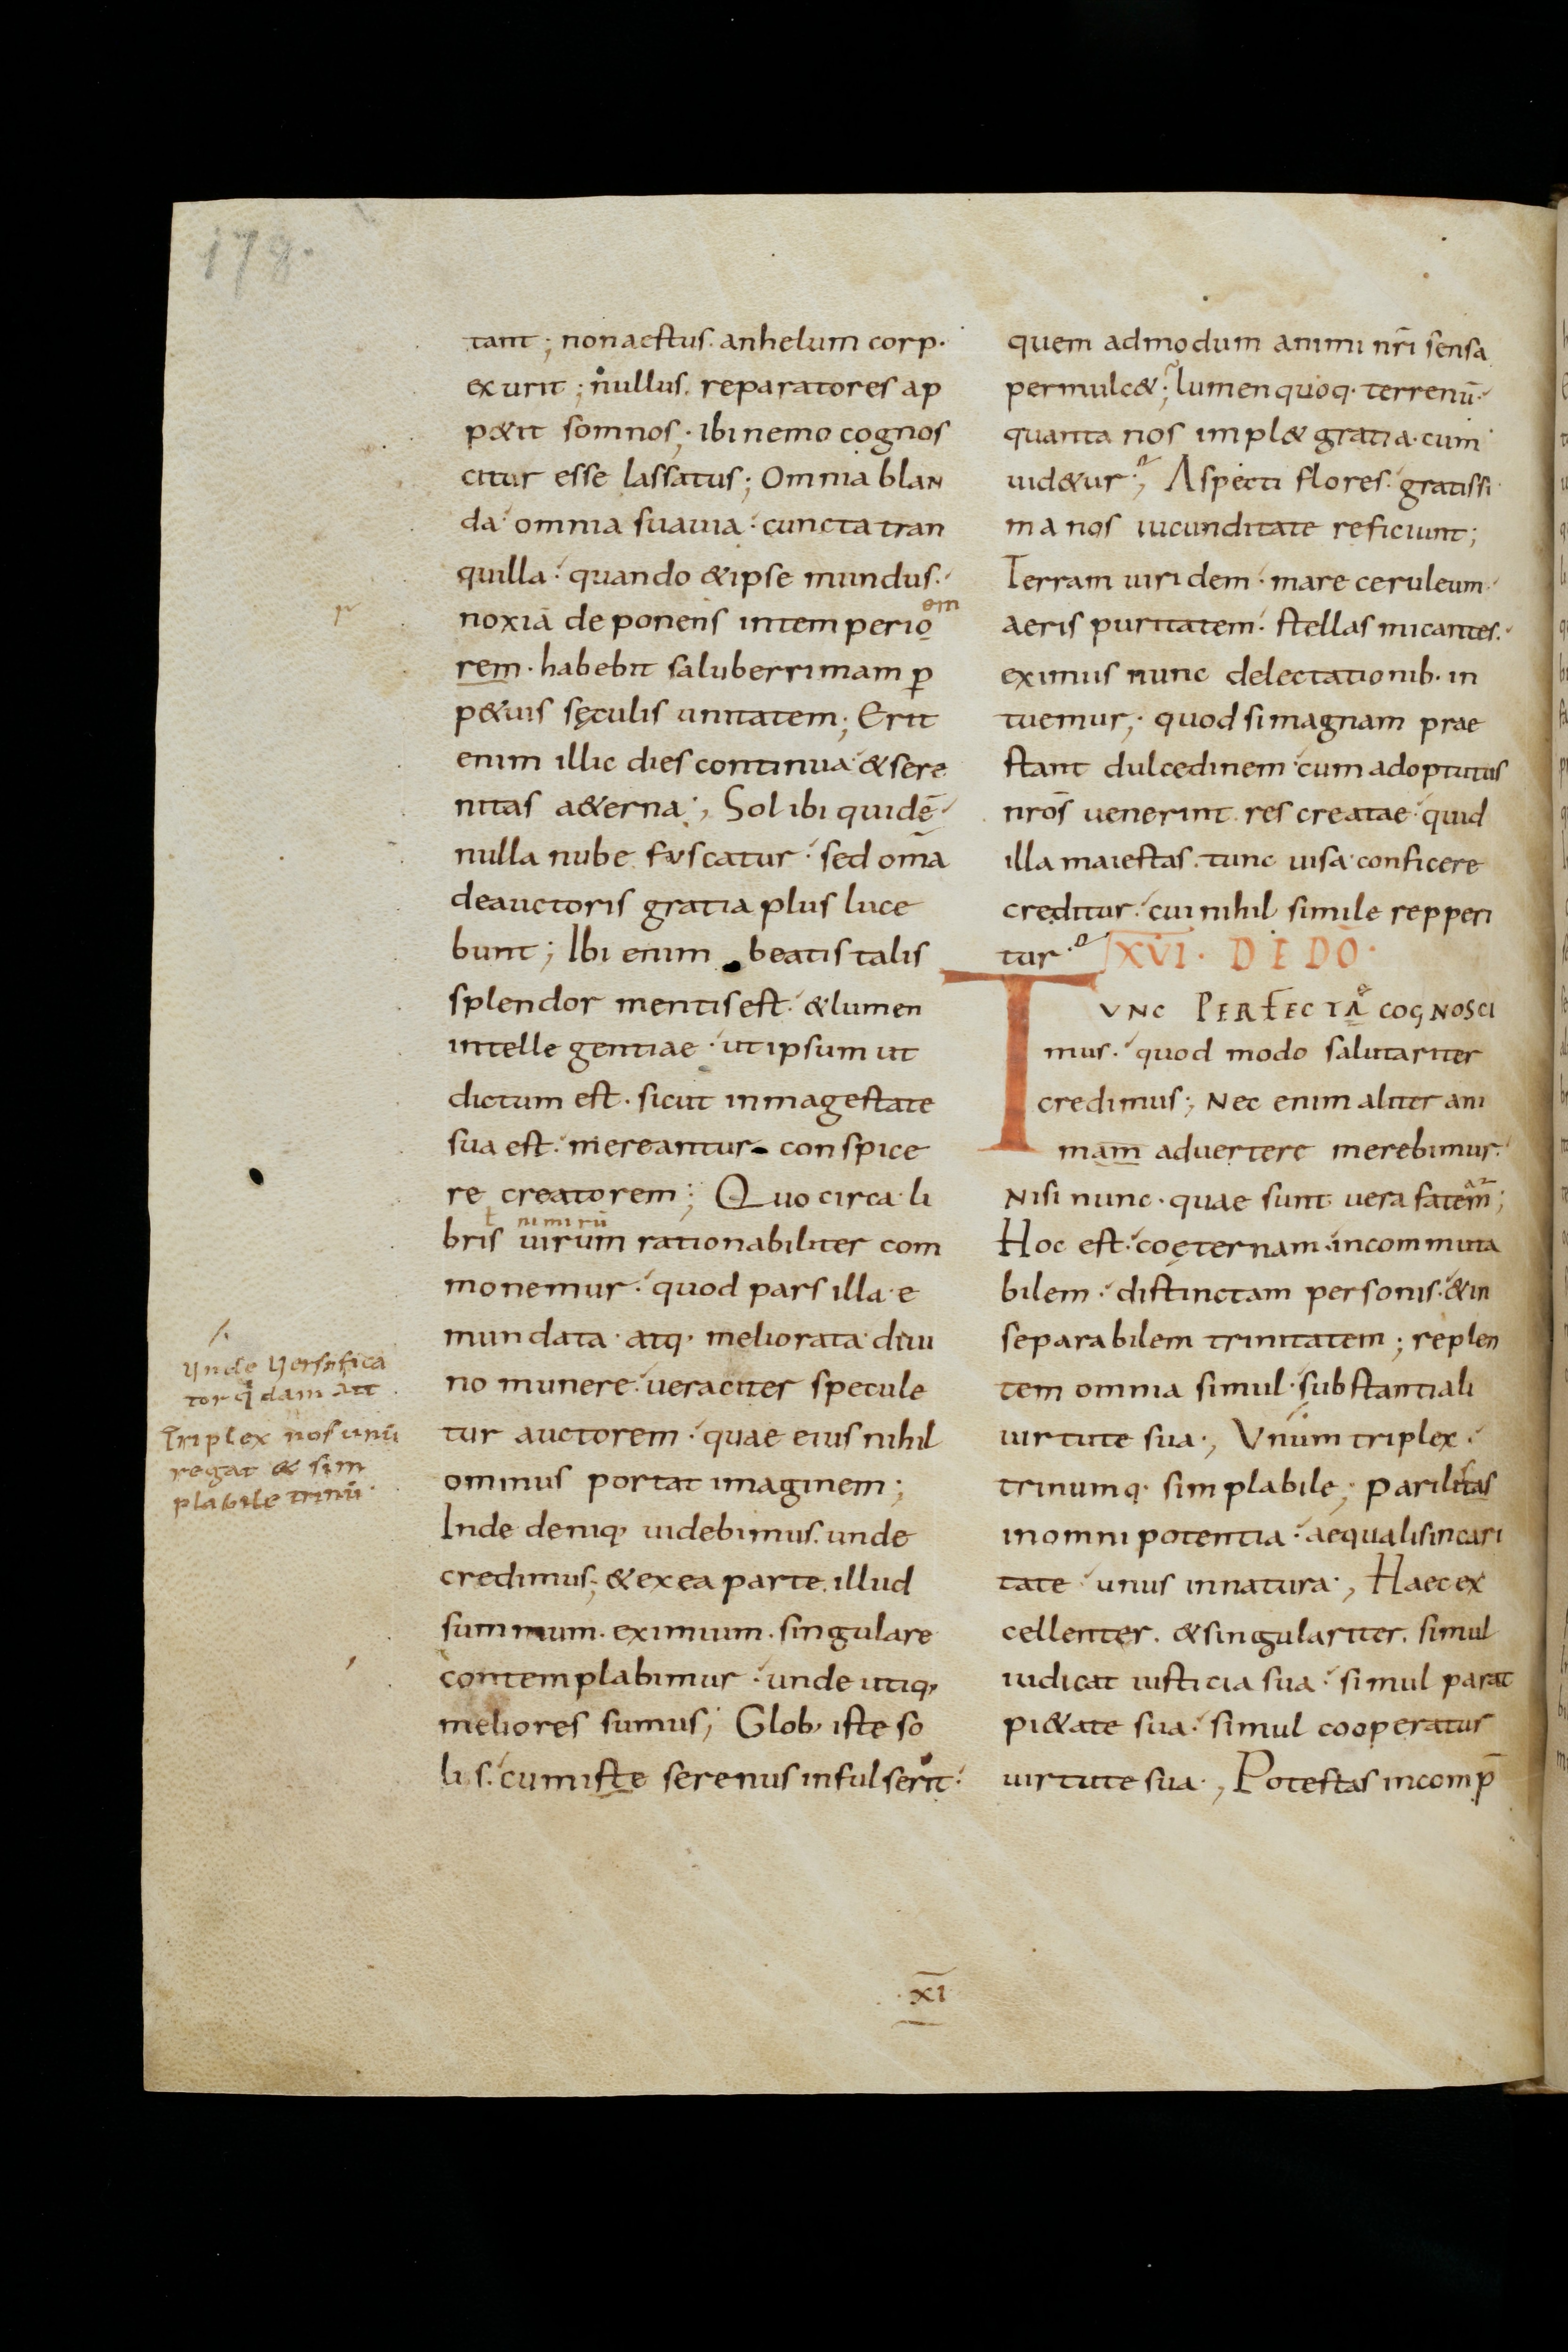 178.
tant; non aestus. anhelum corp.
exurit; nullus. reparatores ap
p&it somnos; ibi nemo cognos
citur esse lassatus; Omnia blan
da· omnia suauia· cuncta tran
quilla· quando & ipse mundus.
noxiā deponens intemperio
em
rem. habebit saluberrimam ꝑ
p&uis sęculis unitatem; Erit
enim illic dies continua & sere
nitas a&erna; Sol ibi quidē
nulla nube fuscatur· sed om̄a
de auctoris gratia plus luce
bunt; Ibi enim beatis talis
splendor mentis est· & lumen
intellegentiae· ut ipsum ut
dictum est. sicut in magestate
sua est· mereantur conspice
re creatorem; Quo circa· li
ƚ nimirū
bris uirum rationabiliter com
monemur· quod pars illa· e
mundata· atq· meliorata· diui
no munere· ueraciter specule
tur auctorem· quae eius nihil
ominus portat imaginem;
Inde deniq· uidebimus. unde
credimus; & ex ea parte. illud
summum. eximium. singulare
contemplabimur· unde utiq,
meliores sumus; Glob, iste so
lis· cum iste serenus infulserit·
Unde versifica
tor qdam ait
Triplex nos unū
regat & sim
plabile trinū·
quem admodum animi nr̄i sensa
permulc&; lumen quoq· terrenū·
quanta nos impl& gratia· cum
uid&ur; Aspecti flores· gratissi
ma nos iucunditate reficiunt;
Terram uiridem· mare ceruleum·
aeris puritatem· stellas micantes·
eximiis nunc delectationib· in
tuemur; quod si magnam prae
stant dulcedinem· cum adoptutus
nrōs uenerint res creatae· quid
illa maiestas. tunc uisa conficere
creditur· cui nihil simile repperi
tur· XVI· DE DŌ·
TUNC PERFECTA COGNOSCI
e
mus· quod modo salutariter
credimus; Nec enim aliter ani
mam aduertere merebimur·
Nisi nunc· quae sunt uera fatem̄;
Hoc est· coęternam· incommuta
bilem· distinctam personis· & in
separabilem trinitatem; replen
tem omnia simul· substantiali
uirtute sua; Unum triplex·
trinumq· simplabile; Parilitas
in omni potentia· aequalis in cari
tate· unus in natura; Haec ex
cellenter. & singulariter. simul
iudicat iusticia sua· simul parat
pi&ate sua· simul cooperatur
uirtute sua; Potestas incomp̄
·XI